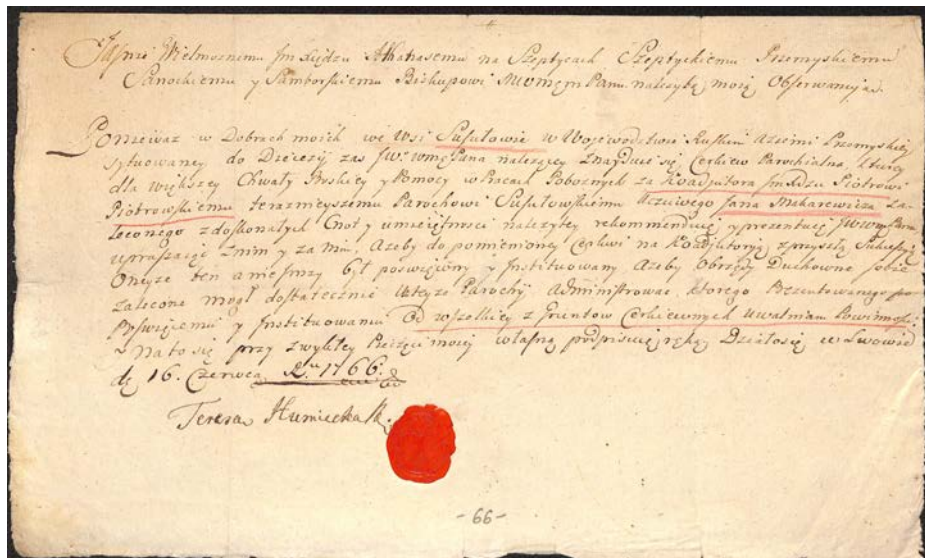 Jaśnie Wielmożnemu Jm Xiędzu Athanasemu na Szeptycach Szeptyckiemu Przemyskiemu
Sanockiemu y Samborskiemu Biskupowi Memu Panu należytą moią Obserwancyą.
Ponieważ w Dobrach moich we Wsi Susułowie w Woiewodztwie Ruskim Aziemi Przemyskiey
sytuowaney do Diecezij zas JWWmę Pana należącey znayduie się Cerkiew Parochialna ktorey
dla większey Chwały Boskiey y Pomocy w Pracach Pobożnych za Koadjutora Jm Xdzu Piotrowi
Piotrowskiemu teraznieyszemu Parochowi Susułowskiemu Uczciwego Jana Makarewicza za-
leconego z doskonałych Cnot y umieiętnosci należytey rekommenduię y prezentuię JWWmę Panu
upraszaiąc z nim y za nim, Azeby do pomienioney Cerkwi na Koadiutoryią z przyszłą Sukcessyą
Oneyze ten a nie inszy był poswięcony y Instituowany Azeby Obrządki Duchowne sobie
zalecone mogł dostatecznie w teyze Parochij Administrowac, ktorego Prezentowanego po
Poswięceniu y Instituowaniu Od wszelkiey z Gruntow Cerkiewnych uwalniam Powinnosci
Na to się przy zwykłey Pieczęci moiey własną podpisuię ręką Działosię we Lwowie
dę 16. Czerwca 1766.
Teresa Humiecka
-66-